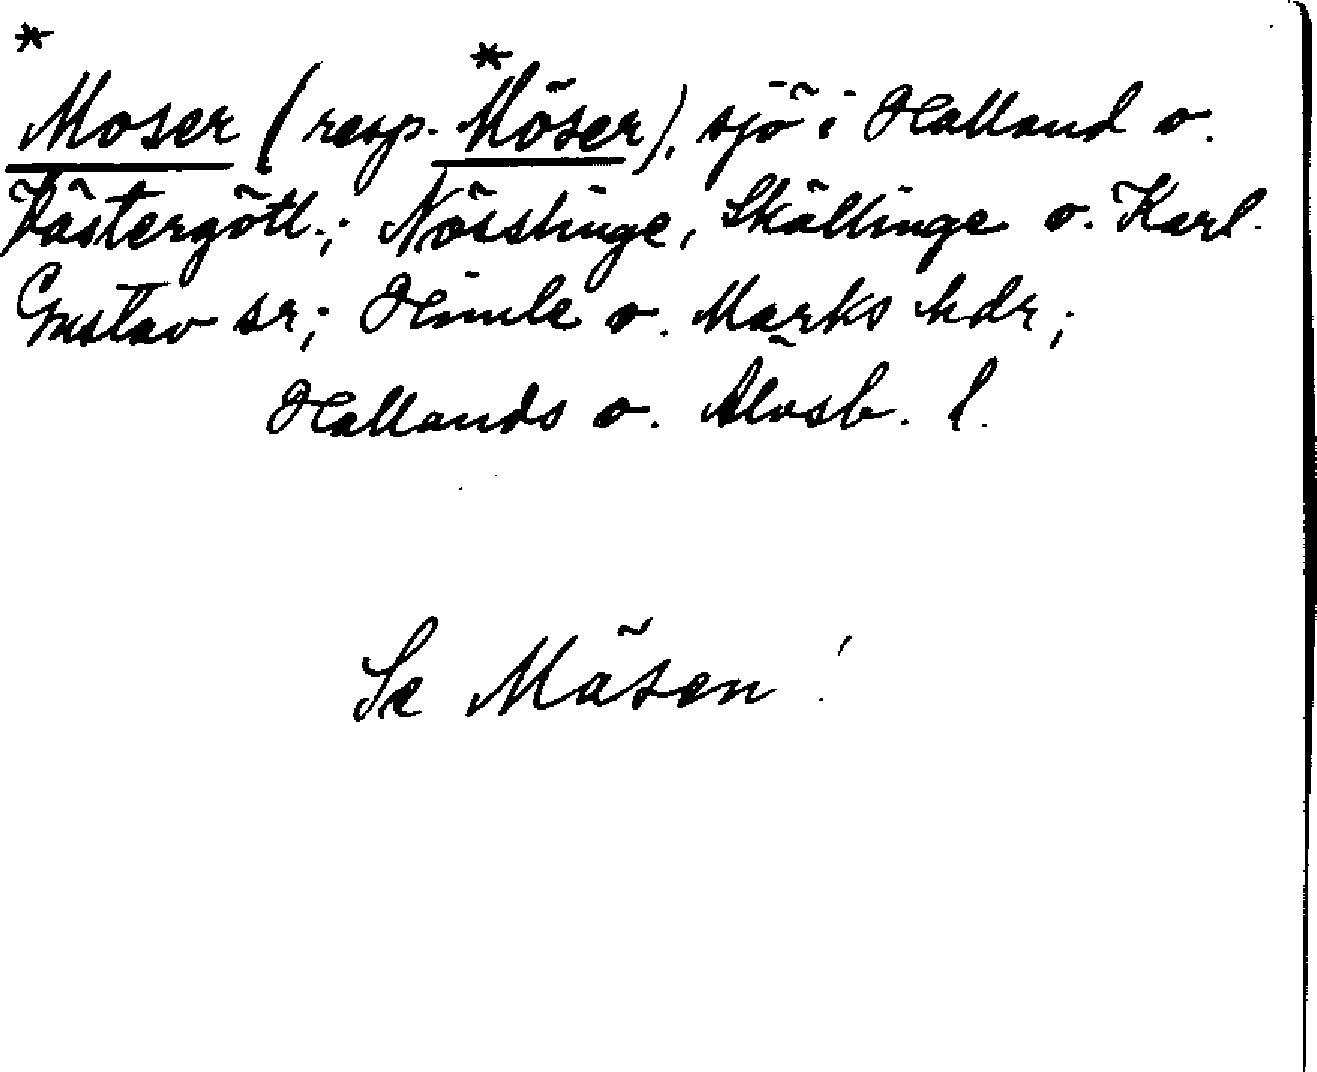 *Moser (resp. *Möser), sjö i Halland o.
Västergötl.; Nösslinge, Skällinge o. Karl
Gustav sr; Himle o. Marks hdr;
Hallands o. Älvsb. l.
Se Mäsen!